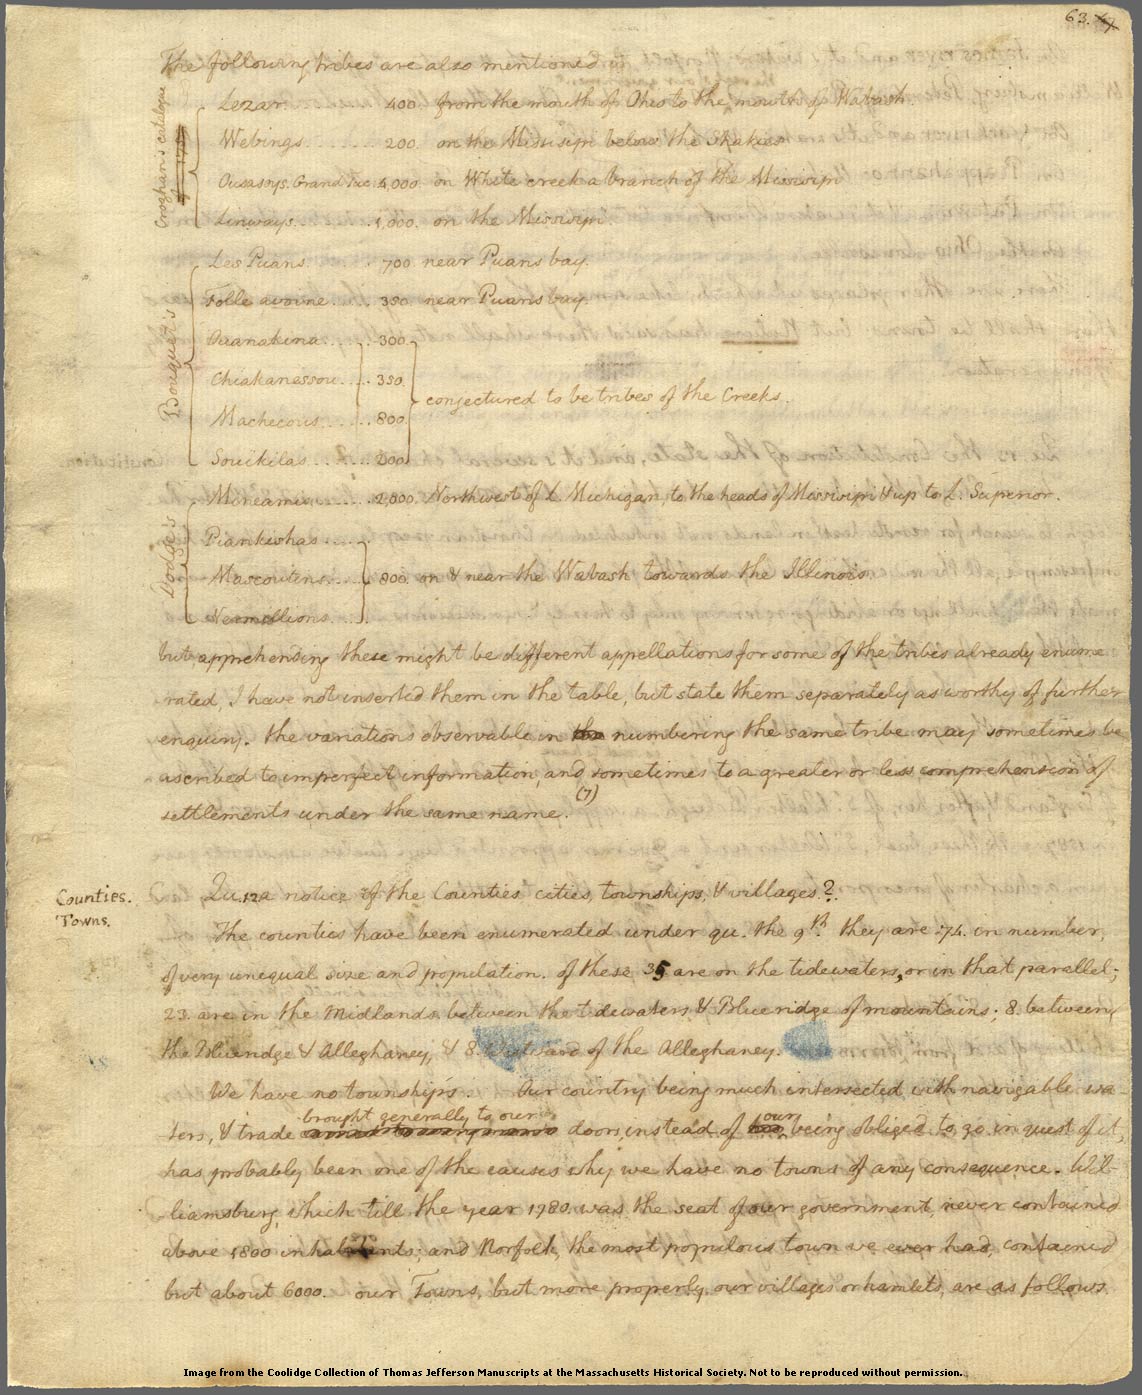 63.
The following tribes are also mentioned in
Croghan's catalogue
Lezar. 400. from the mouth of Ohio to the mouth of Wabash.
Webings........ 200. on the Missisipi below the Shakies
Ousasoys. Grand Tuc. 4,000. on White creek a branch of the Missisipi
Linways........ 1,000. on the Missisipi.
Bouquet's
Les Puans. 700. near Puans bay.
Folle avoine.... 350. near Puans bay.
Ouanakina.... 300.
Chiakanessou.... 350.
conjectured to be tribes of the Creeks.
Machecous...... 800.
Souikilas...... 200.
Hodge's
Mineamis...... 2,000. Northwest of L. Michigan, to the heads of Missisipi & up to L. Superior.
Piankishas....
Mascoutens.... 800. on & near the Wabash towards the Illinois.
Vermillions....
but apprehending these might be different appellations for some of the tribes already enume-
rated, I have not inserted them in the table, but state them separately as worthy of further
enquiry. the variations observable in numbering the same tribe may sometimes be
ascribed to imperfect information, and sometimes to a greater or less comprehension of
settlements under the same name. (7)
Counties.
Towns.
Qu. 12. a notice of the Counties cities, townships, & villages?
The counties have been enumerated under qu. the 9th. they are 74. in number,
of very unequal size and population. of these 35 are on the tidewaters, or in that parallel;
23. are in the Midlands, between the tidewaters & Blue ridge of mountains; 8. between
the Blueridge & Alleghaney, & 8. Westward of the Alleghaney.
We have no townships. Our country being much intersected with navigable wa-
ters, & trade brought generally to our doors, instead of our being obliged to go in quest of it,
has probably been one of the causes why we have no towns of any consequence. Wil-
liamsburg, which till the year 1780 was the seat of our government, never contained
above 1800 inhabitants; and Norfolk, the most populous town we ever had, contained
but about 6000. our Towns, but more properly our villages or hamlets, are as follows.
Image from the Coolidge Collection of Thomas Jefferson Manuscripts at the Massachusetts Historical Society. Not to be reproduced without permission.